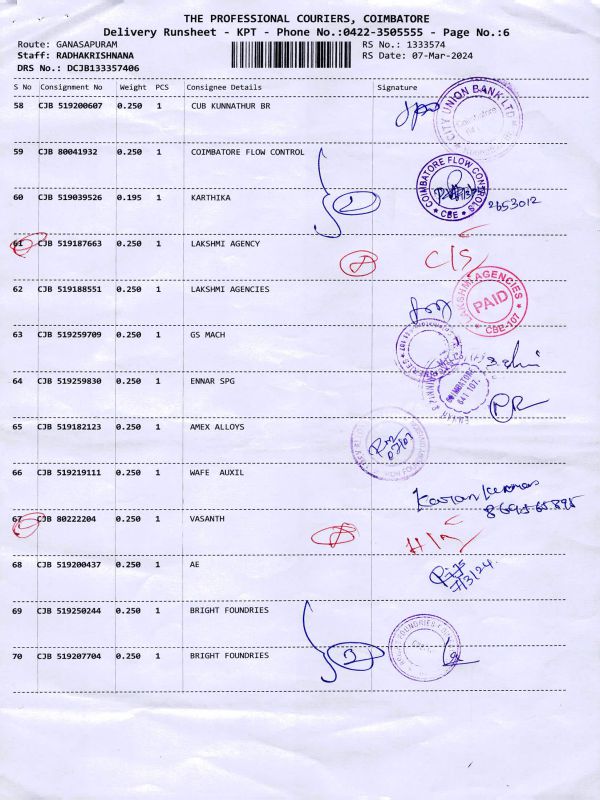 THE PROFESSIONAL COURIERS, COIMBATORE
Delivery Runsheet - KPT - Phone No.:0422-3505555 - Page No.:6
Route: GANASAPURAM RS No.: 1333574
Staff: RADHAKRISHNANA RS Date: 07-Mar-2024
DRS No.: DCJB133357406
S No Consignment No Weight PCS Consignee Details Signature
58 CJB 519200607 0.250 1 CUB KUNNATHUR BR
CITY UNION BANK LTD
59 CJB 80041932 0.250 1 COIMBATORE FLOW CONTROL
COIMBATORE FLOW CONTROLS
* CBE *
60 CJB 519039526 0.195 1 KARTHIKA 2
2653012
61 CJB 519187663 0.250 1 LAKSHMI AGENCY
C/S
62 CJB 519188551 0.250 1 LAKSHMI AGENCIES
LAKSHMI AGENCIES
PAID
* CBE-107 *
63 CJB 519259709 0.250 1 GS MACH
64 CJB 519259830 0.250 1 ENNAR SPG
COIMBATORE
641 107.
PR
65 CJB 519182123 0.250 1 AMEX ALLOYS
07/03
66 CJB 519219111 0.250 1 WAFE AUXIL
67 CJB 80222204 0.250 1 VASANTH
68 CJB 519200437 0.250 1 AE
7/3/24
69 CJB 519250244 0.250 1 BRIGHT FOUNDRIES
70 CJB 519207704 0.250 1 BRIGHT FOUNDRIES 2